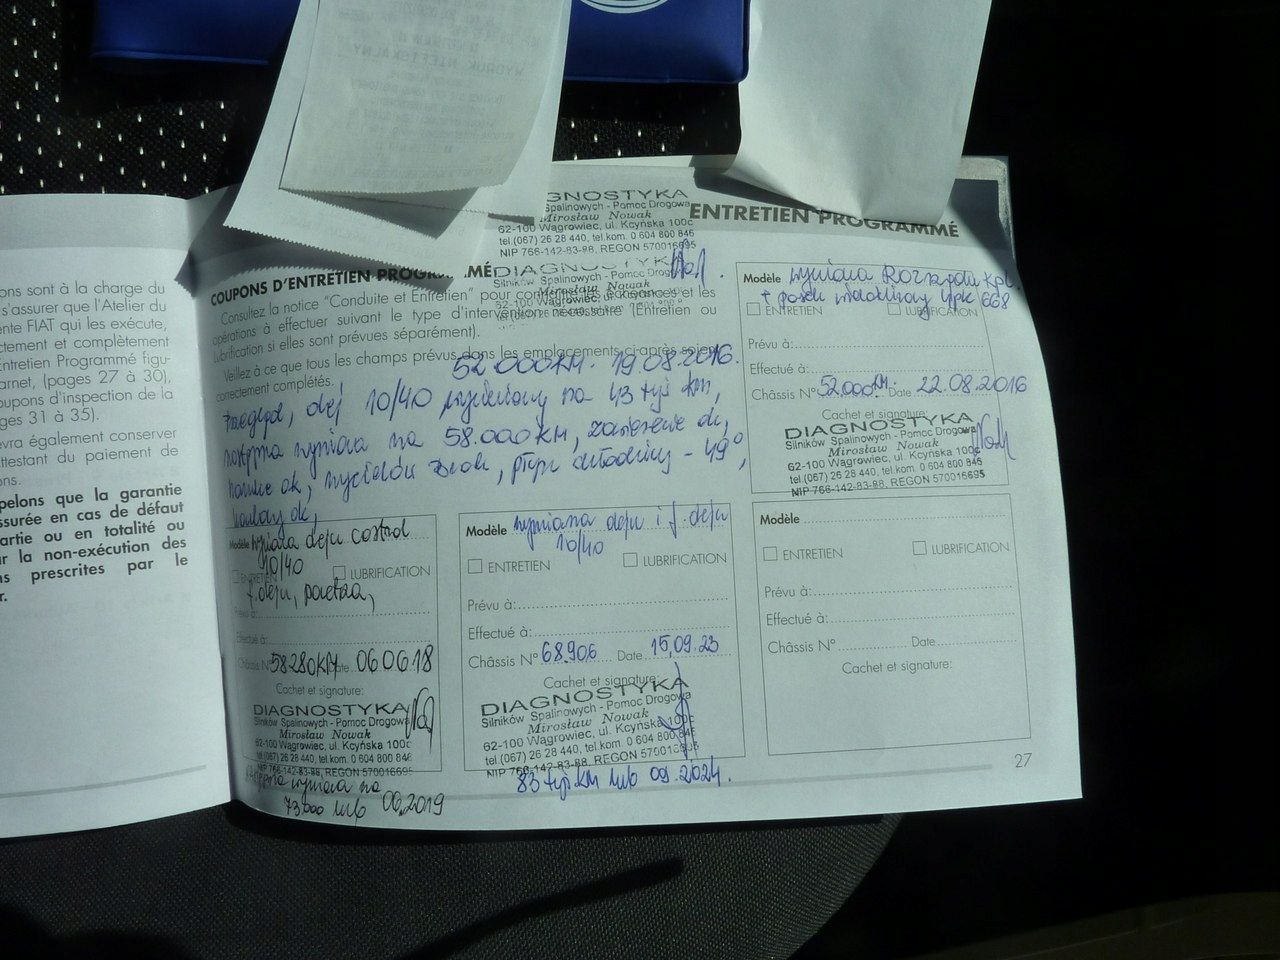 WYDRUK NIEFISKALNY
ons sont à la charge du
s'assurer que l'Atelier du
ente FIAT qui les exécute,
ctement et complètement
Entretien Programmé figu-
arnet, (pages 27 à 30),
oupons d'inspection de la
ges 31 à 35).
evra également conserver
attestant du paiement de
ons.
pelons que la garantie
ssurée en cas de défaut
artie ou en totalité ou
r la non-exécution des
ns prescrites par le
r.
GNOSTYKA
Spalinowych - Pomoc Drogowa
Mirosław Nowak
62-100 Wągrowiec, ul. Kcyńska 100c
tel.(067) 26 28 440, tel.kom. 0 604 800 846
NIP 766-142-83-88, REGON 570016695
ENTRETIEN PROGRAMMÉ
COUPONS D'ENTRETIEN PROGRAMMÉ
DIAGNOSTYKA
Silników Spalinowych - Pomoc Drogowa
Mirosław Nowak
Consultez la notice "Conduite et Entretien" pour
et les
opérations à effectuer suivant le type d'intervention nécessaire (Entretien ou
Lubrification si elles sont prévues séparément).
Veillez à ce que tous les champs prévus dans les emplacements ci-après soient
correctement complétés.
52 000KM. 19.08.2016.
Przegląd, olej 10/40 wymieniony na 43 tyś km,
następna wymiana na 58.000KM, zawieszenie ok,
hamulce ok, płyn chłodniczy - 49°,
ok,
Modèle wymiana Rozrządu kpl.
+ pasek wielorowkowy 6pk 668
ENTRETIEN LUBRIFICATION
Prévu à:
Effectué à:
Châssis N° 52.000KM. Date 22.08.2016
Cachet et signature:
DIAGNOSTYKA
Silników Spalinowych - Pomoc Drogowa
Mirosław Nowak
62-100 Wągrowiec, ul. Kcyńska 100c
tel.(067) 26 28 440, tel.kom. 0 604 800 846
NIP 766-142-83-88, REGON 570016695
Modèle wymiana oleju castrol
10/40
ENTRETIEN LUBRIFICATION
f. oleju, powietrza,
Prévu à:
Effectué à:
Châssis N° 58280KM Date 06 06.18
Cachet et signature:
DIAGNOSTYKA
Silników Spalinowych - Pomoc Drogowa
Mirosław Nowak
62-100 Wągrowiec, ul. Kcyńska 100c
tel.(067) 26 28 440, tel.kom. 0 604 800 846
NIP 766-142-83-88, REGON 570016695
następna wymiana na
73.000 lub 06.2019
Modèle wymiana oleju i f. oleju
10/40
ENTRETIEN LUBRIFICATION
Prévu à:
Effectué à:
Châssis N° 68.906 Date 15.09.23
Cachet et signature:
DIAGNOSTYKA
Silników Spalinowych - Pomoc Drogowa
Mirosław Nowak
62-100 Wągrowiec, ul. Kcyńska 100c
tel.(067) 26 28 440, tel.kom. 0 604 800 846
NIP 766-142-83-88, REGON 570016695
83 tyś KM lub 09.2024.
Modèle
ENTRETIEN LUBRIFICATION
Prévu à:
Effectué à:
Châssis N° Date
Cachet et signature:
27